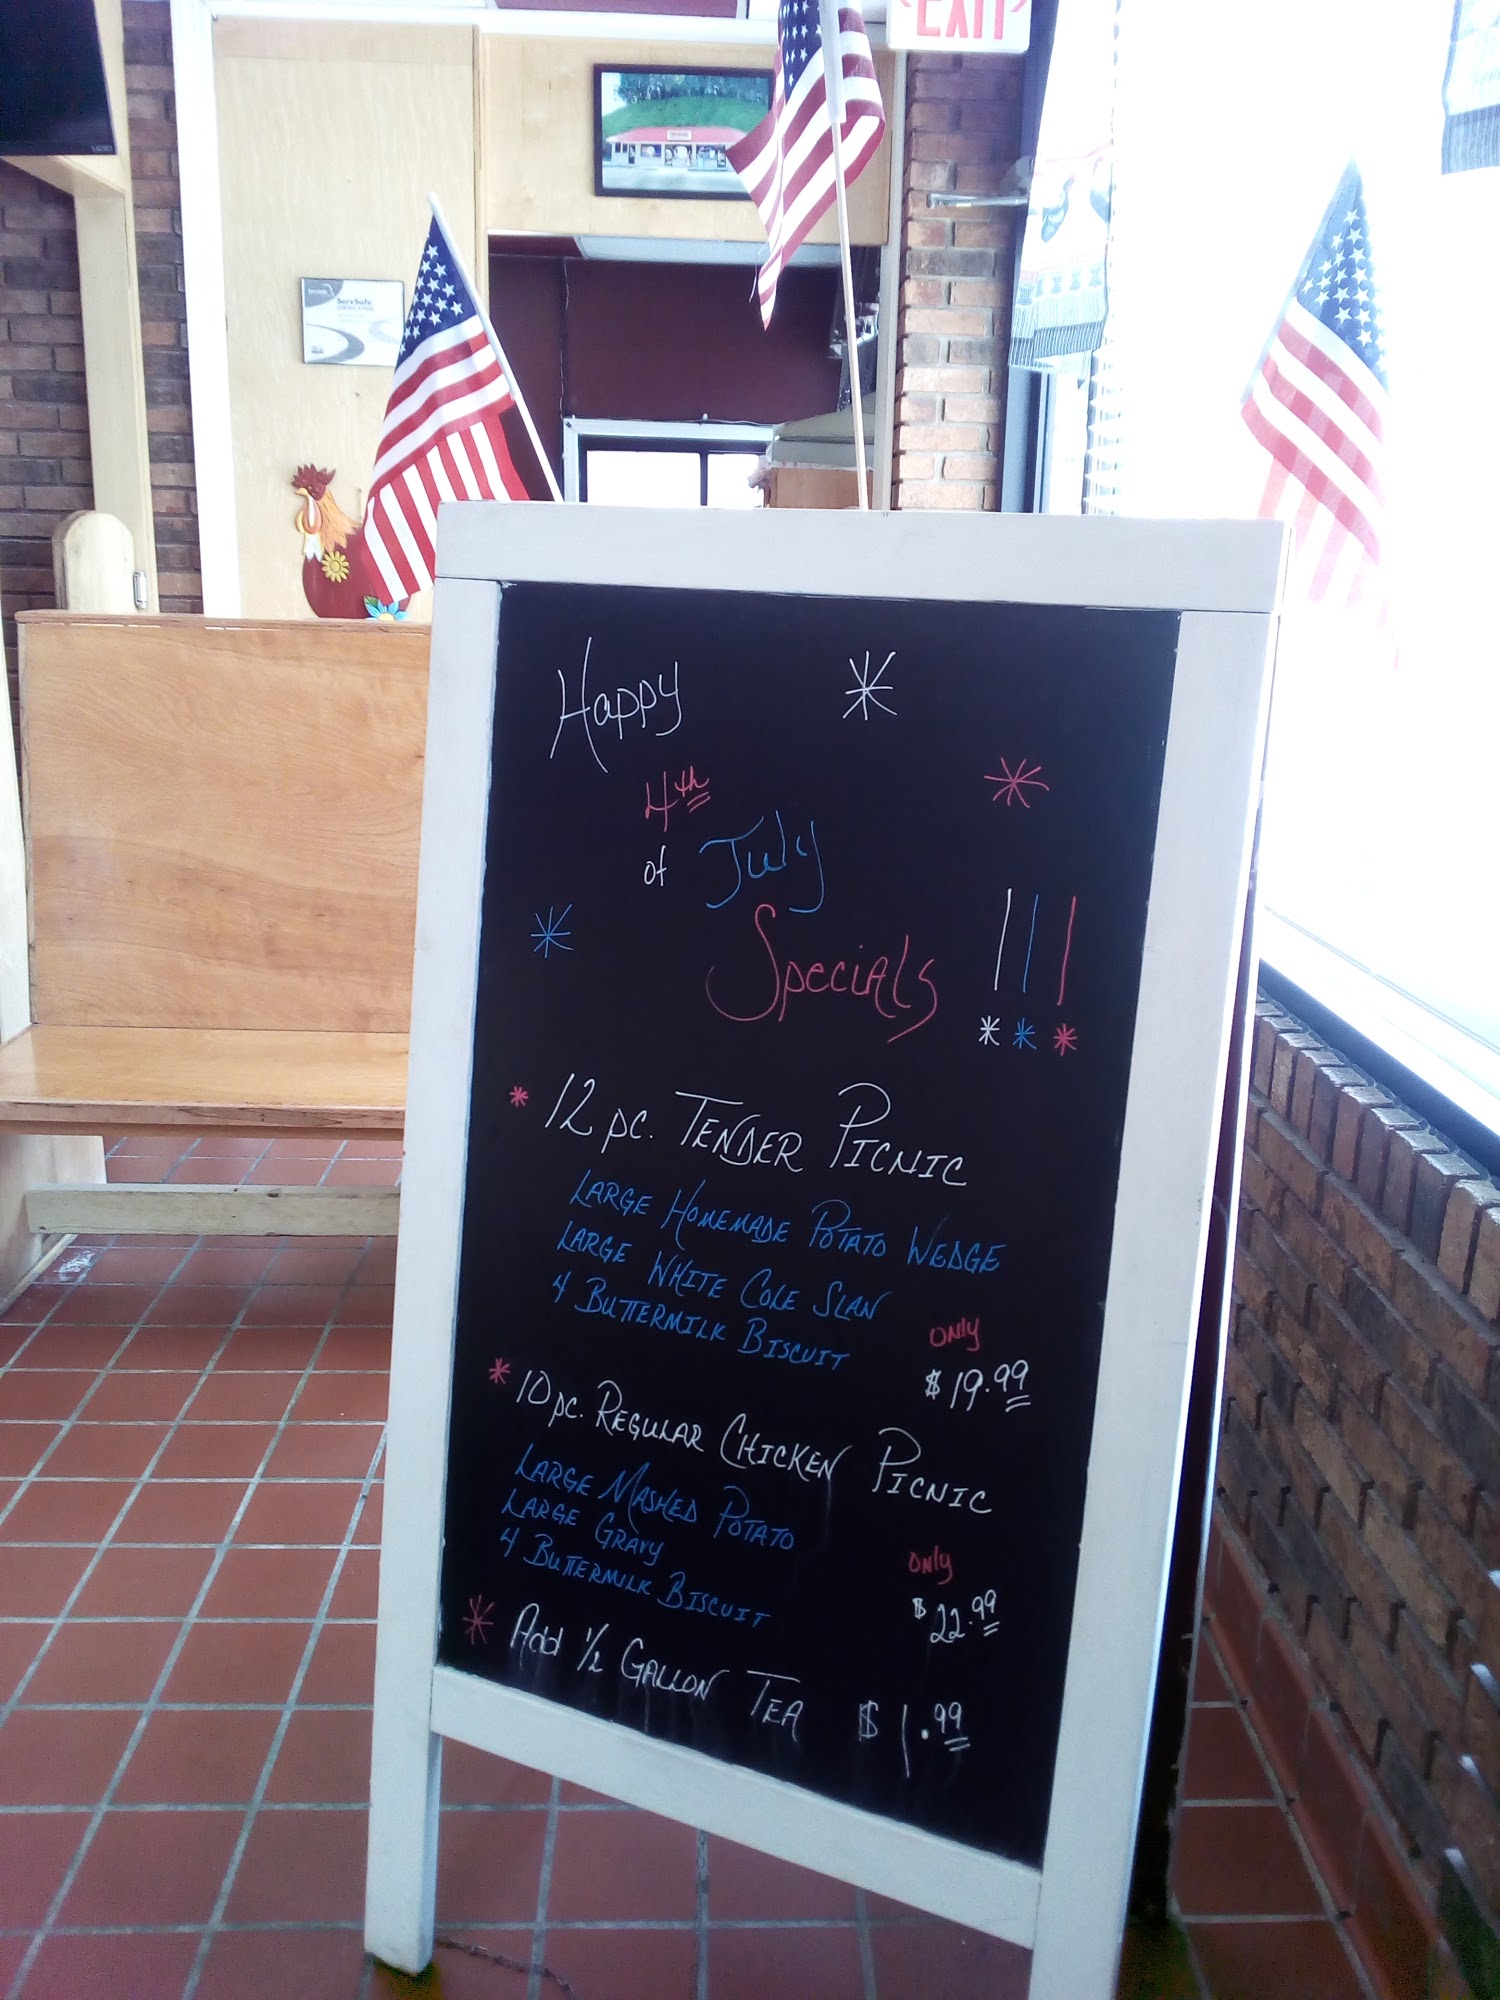 EXIT
VIZIO
ServSafe
CERTIFICATION
Happy
4th
of July
Specials !!!
* 12 pc. TENDER PICNIC
LARGE HOMEMADE POTATO WEDGE
LARGE WHITE COLE SLAW
4 BUTTERMILK BISCUIT
ONly
$19.99
* 10 pc. REGULAR CHICKEN PICNIC
LARGE MASHED POTATO
LARGE GRAVY
4 BUTTERMILK BISCUIT
ONly
$22.99
* Add 1/2 GALLON TEA $1.99